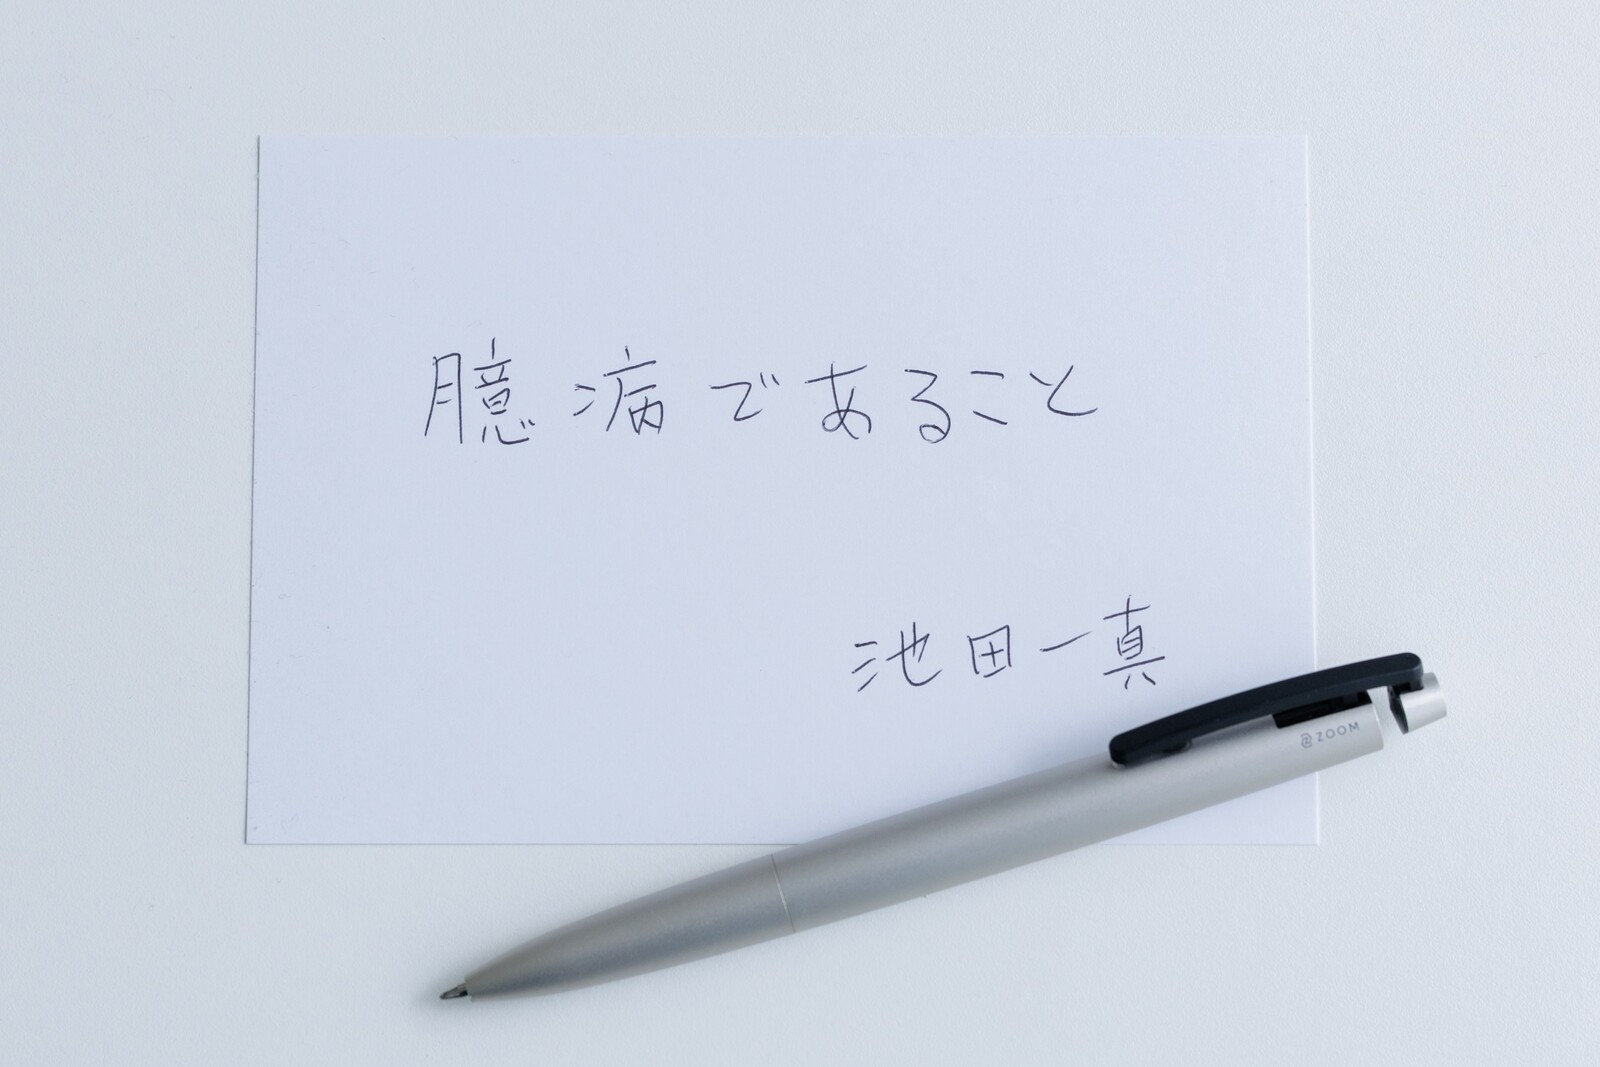 臆病であること
池田一真
ZOOM